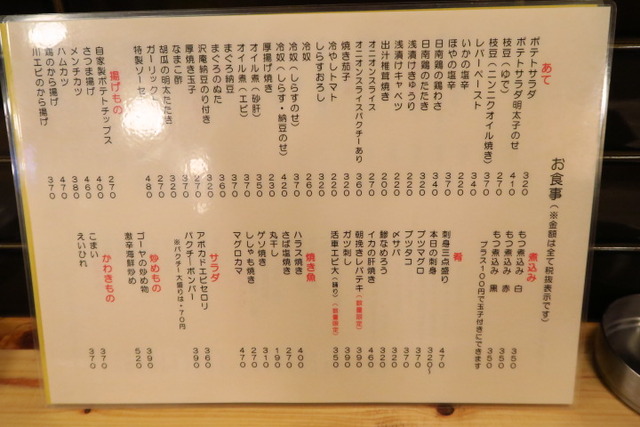 お食事（※金額は全て税抜表示です）
あて
ポテトサラダ 320
ポテトサラダ明太子のせ 410
枝豆（ゆで） 270
枝豆（ニンニクオイル焼き） 370
レバーペースト 340
いかの塩辛 220
ほやの塩辛 370
日南鶏の鶏わさ 340
日南鶏のたたき 320
浅漬けきゅうり 220
浅漬けキャベツ 220
出汁椎茸焼き 200
オニオンスライス 270
オニオンスライスパクチーあり 360
焼き茄子 320
冷やしトマト 220
しらすおろし 320
冷奴 260
冷奴（しらすのせ） 370
冷奴（しらす・納豆のせ） 420
厚揚げ焼き 230
オイル煮（砂肝） 350
オイル煮（エビ） 370
まぐろ納豆 370
まぐろのぬた 360
沢庵納豆のり付き 320
厚焼き玉子 370
なまこ酢 320
胡瓜の明太たたき 270
ガーリックトースト
特製ソーセージ 480
揚げもの
自家製ポテトチップス 270
さつま揚げ 400
メンチカツ 460
ハムカツ 470
鶏のから揚げ 380
川エビのから揚げ 370
煮込み
もつ煮込み 白 350
もつ煮込み 赤 350
もつ煮込み 黒 350
プラス100円で玉子付きにできます
肴
刺身三点盛り 470
本日の刺身 320〜
ブツマグロ 340
ブツタコ 370
〆サバ 320
鯵なめろう 320
イカの肝焼き 460
朝挽きレバテキ（数量限定） 390
ガツ刺し 390
活車エビ大（踊り）（数量限定） 350
焼き魚
ハラス焼き 400
さば塩焼き 270
丸干し 190
ゲソ焼き 310
ししゃも焼き 270
マグロカマ 470
サラダ
アボカドエビセロリ 360
パクチーボンバー 390
※パクチー大盛りは＋70円
炒めもの
ゴーヤの炒め物 390
激辛海鮮炒め 520
かわきもの
こまい 370
えいひれ 370